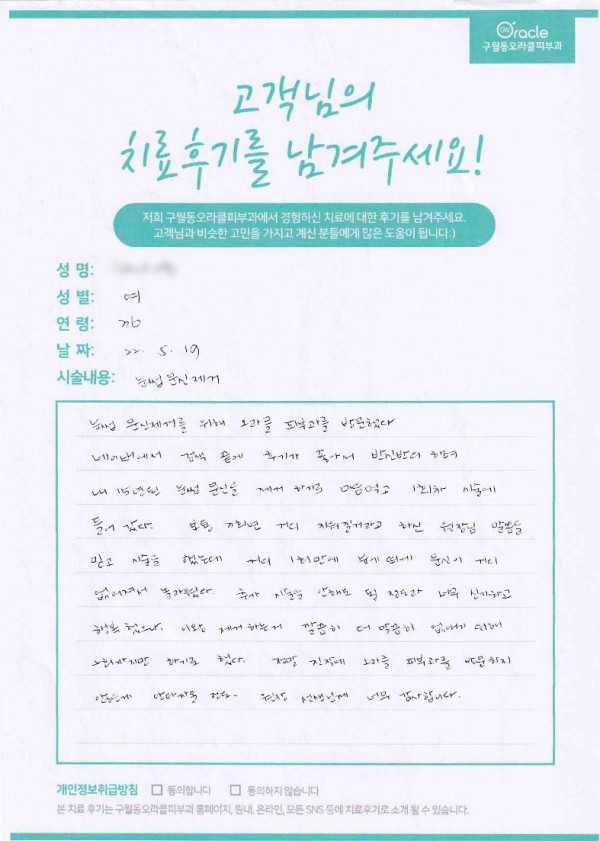 Oracle
구월동오라클피부과
고객님의
치료후기를 남겨주세요!
저희 구월동오라클피부과에서 경험하신 치료에 대한 후기를 남겨주세요.
고객님과 비슷한 고민을 가지고 계신 분들에게 많은 도움이 됩니다:)
성 명:
성 별: 여
연 령:
날 짜: 22. 5. 19
시술내용: 눈썹문신제거
눈썹 문신제거를 위해 오라클 피부과를 방문했다
네이버에서 검색 끝에 후기가 좋아서 반신반의 하며
내 15년된 눈썹 문신을 제거 하기로 마음먹고 1회차 시술에
들어 갔다. 보통 기회면 거의 지워질거라고 하신 원장님 말씀을
믿고 시술을 했는데 거의 1회만에 눈에 띄에 문신이 거의
없어져서 놀라웠다. 추가 시술을 안해도 될 정도라 너무 신기하고
행복 했으나, 이왕 제거하는거 깔끔히 더 말끔히 없애기 위해
2회까지만 하기로 했다. 정말 진작에 오라클 피부과를 방문하지
안은게 안타까울 정도- 원장 선생님께 너무 감사합니다.
개인정보취급방침 □ 동의합니다 □ 동의하지 않습니다
본 치료 후기는 구월동오라클피부과 홈페이지, 원내, 온라인, 모든 SNS 등에 치료후기로 소개 될 수 있습니다.